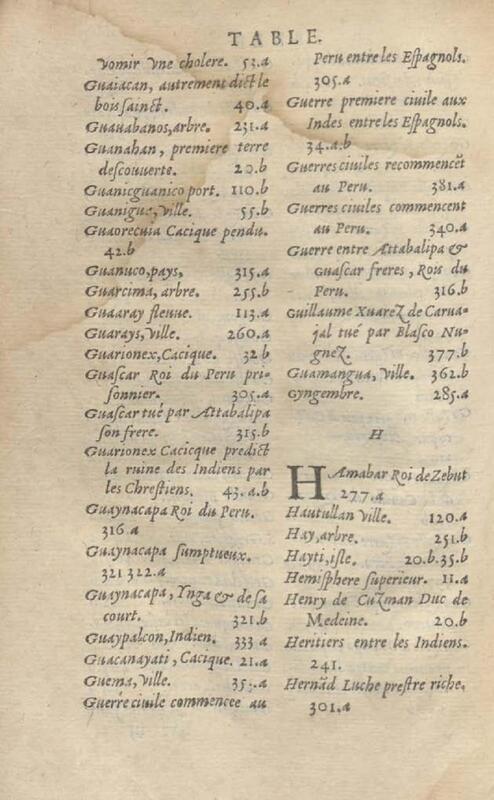 TABLE.
vomir vne cholere. 53.a
Guaiacan, autrement dict le
bois sainct. 40.a
Guauabanos, arbre. 231.a
Guanahan, premiere terre
descouuerte. 20.b
Guanicguanico port. 110.b
Guanigue, ville. 55.b
Guaorecuia Cacique pendu.
42.b
Guanuco, pays, 315.a
Guarcima, arbre. 255.b
Guaaray fleuue. 113.a
Guarays, ville. 260.a
Guarionex, Cacique. 32 b
Guascar Roi du Peru pri-
sonnier. 305.a
Guascar tué par Attabalipa
son frere. 315.b
Guarionex Cacicque predict
la ruine des Indiens par
les Chrestiens. 43.a.b
Guaynacapa Roi du Peru.
316.a
Guaynacapa sumptueux.
321 322.a
Guaynacapa, Ynga & de sa
court. 321.b
Guaypalcon, Indien. 333 a
Guacanayati, Cacique. 21.a
Guema, ville. .a
Guerre ciuile commencee au
Peru entre les Espagnols.
305.a
Guerre premiere ciuile aux
Indes entre les Espagnols.
34.a.b
Guerres ciuiles recommencēt
au Peru. 381.a
Guerres ciuiles commencent
au Peru. 340.a
Guerre entre Attabalipa &
Guascar freres, Rois du
Peru. 316.b
Guillaume Xuarez de Carua-
jal tué par Blasco Nu-
gnez. 377.b
Guamangua, ville. 362.b
Gyngembre. 285.a
H
HAmabar Roi de Zebut
277.a
Hautullan ville. 120.a
Hay, arbre. 251.b
Hayti, isle. 20.b.35.b
Hemisphere superieur. 11.a
Henry de Cuzman Duc de
Medcine. 20.b
Heritiers entre les Indiens.
241.
Hernād Luche prestre riche.
301.a